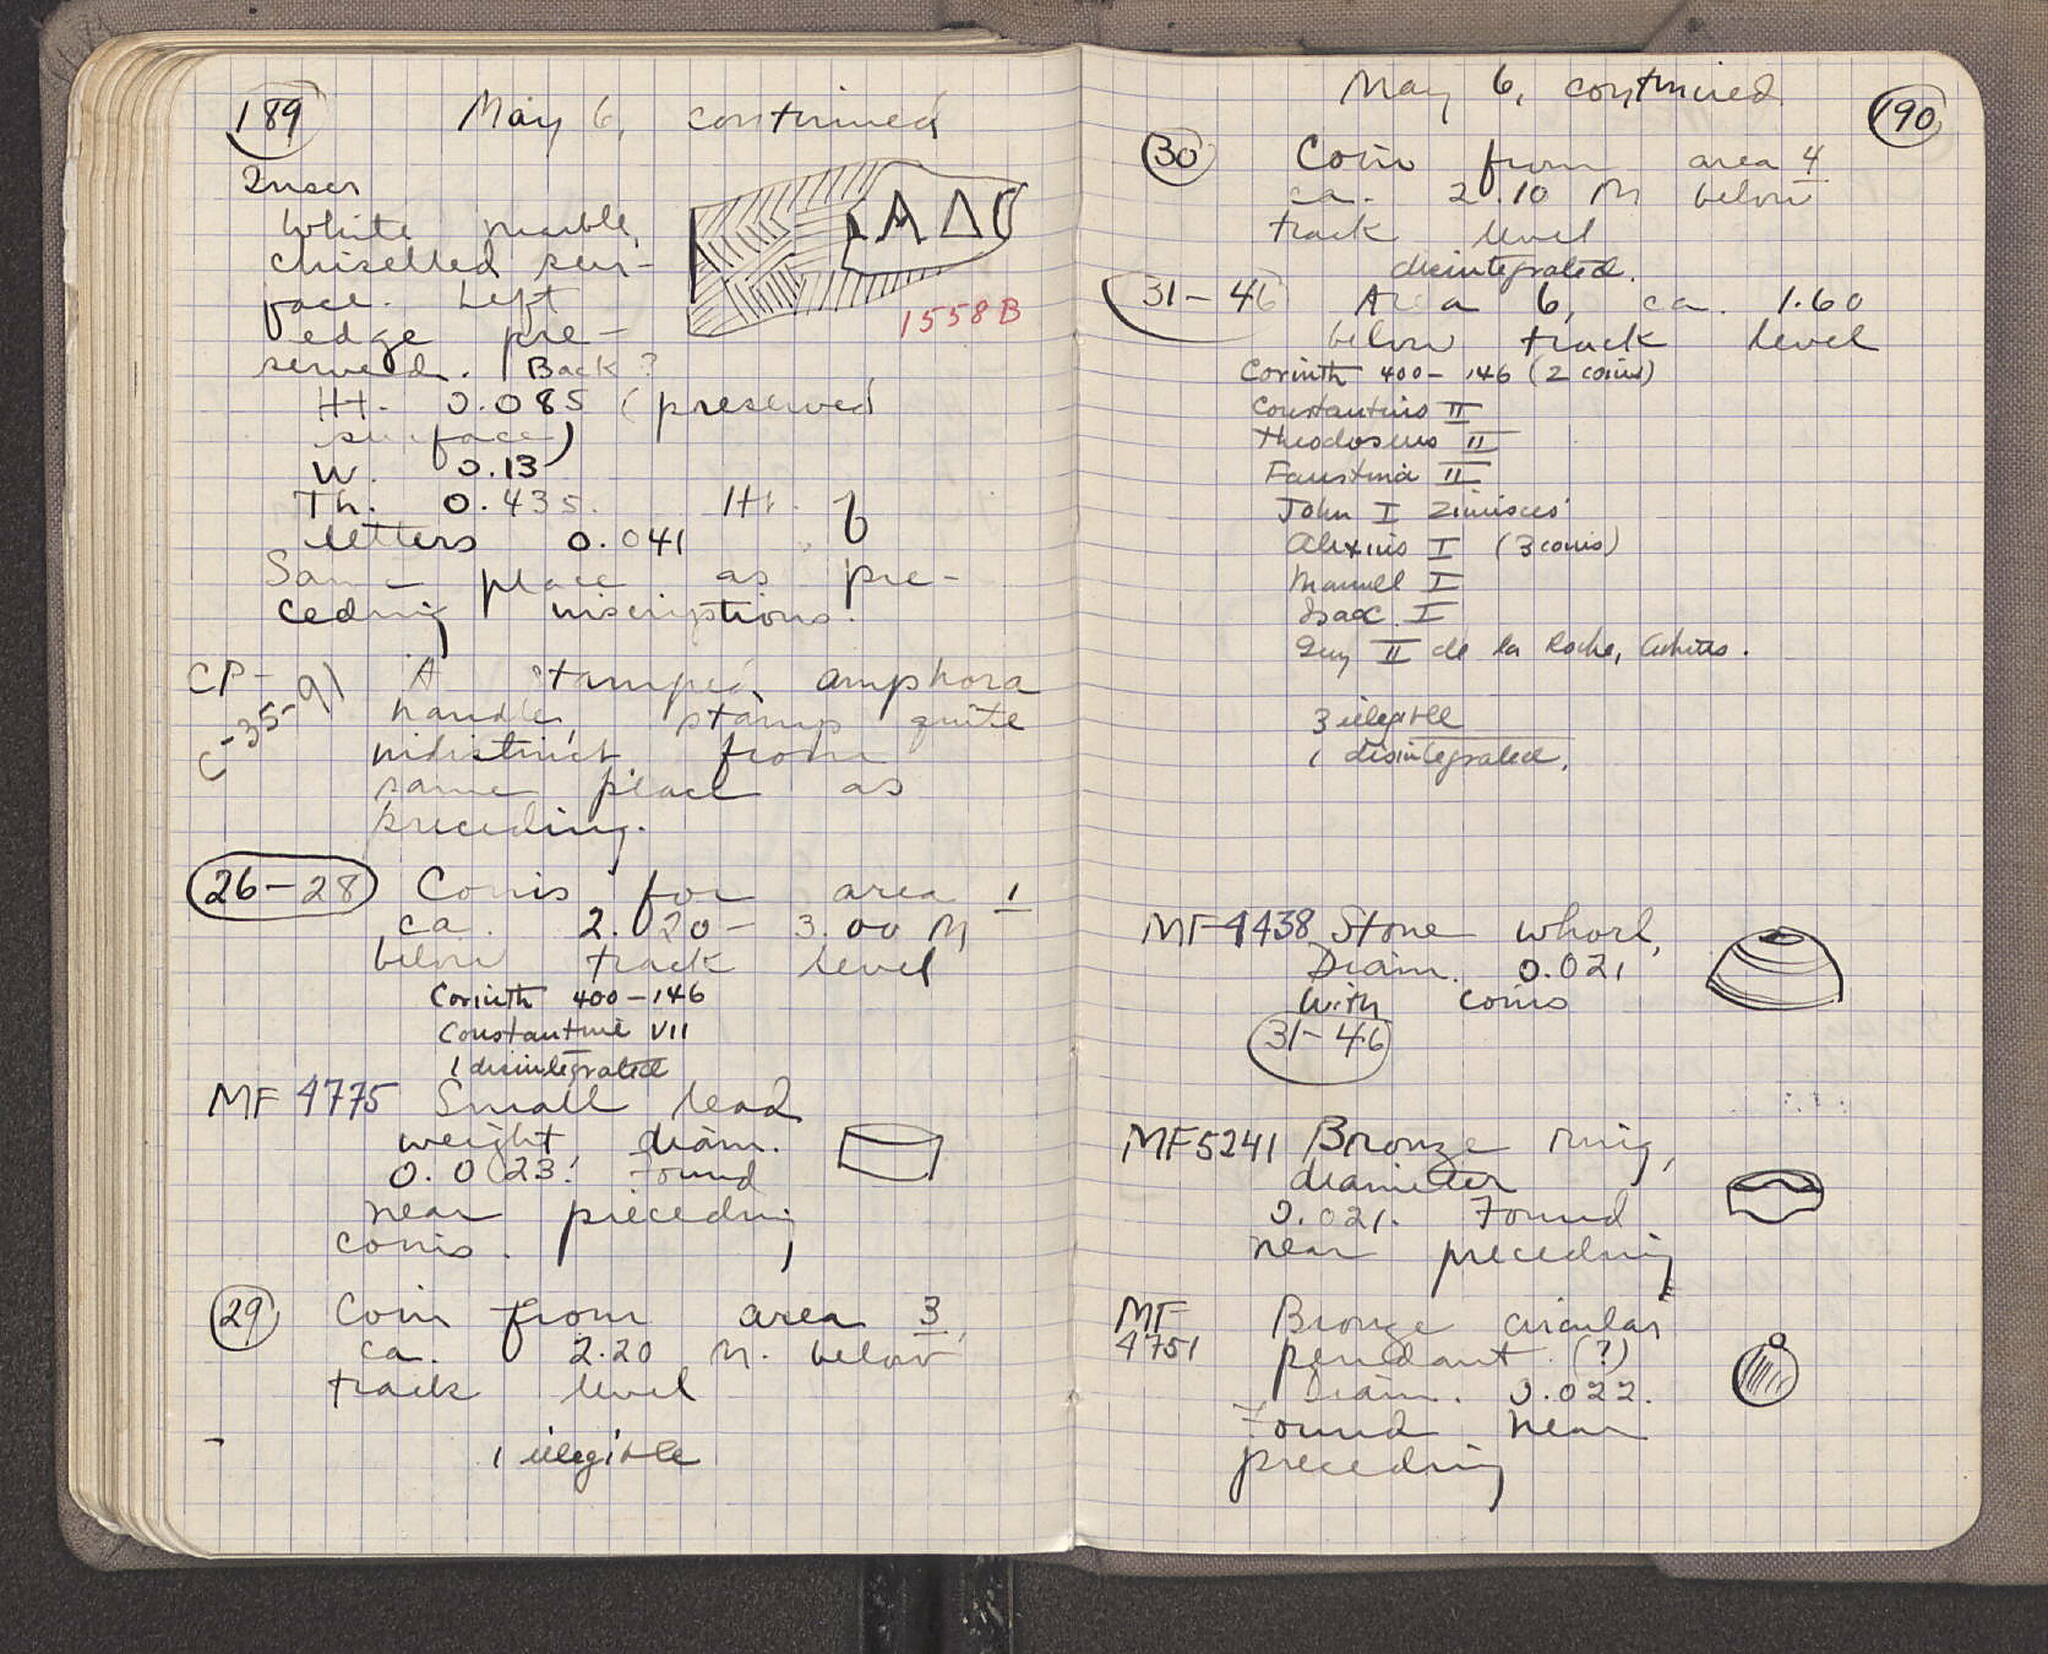 189
May 6, continued
Inscr
White marble,
chiselled sur-
face. Left
edge pre-
served. Back?
ΑΔ
1558B
Ht. 0.085 (preserved
surface)
W. 0.13
Th. 0.435. Ht. of
letters 0.041
Same place as pre-
ceding inscriptions.
CP-
C-35-91
A stamped amphora
handle, stamp quite
indistinct from
same place as
preceding.
26-28 Coins for area 1
ca. 2.20 - 3.00 M
below track level
Corinth 400-146
Constantine VII
1 disintegrated
MF 4775 Small lead
weight diam.
0.023. Found
near preceding
coins.
29 Coin from area 3,
ca. 2.20 M. below
track level
1 illegible
May 6, continued
190
30 Coin from area 4
ca. 2.10 M below
track level
disintegrated.
31-46 Area 6, ca. 1.60
below track level
Corinth 400-146 (2 coins)
Constantius II
Theodosius II
Faustina II
John I Zimisces
Alexius I (3 coins)
Manuel I
Isaac I
Guy II de la Roche, Athens.
3 illegible
1 disintegrated.
MF 4438 Stone whorl,
Diam. 0.021
with coins
31-46
MF5241 Bronze ring,
diameter
0.021. Found
near preceding
MF
4751
Bronze circular
pendant (?)
Diam. 0.022.
Found near
preceding